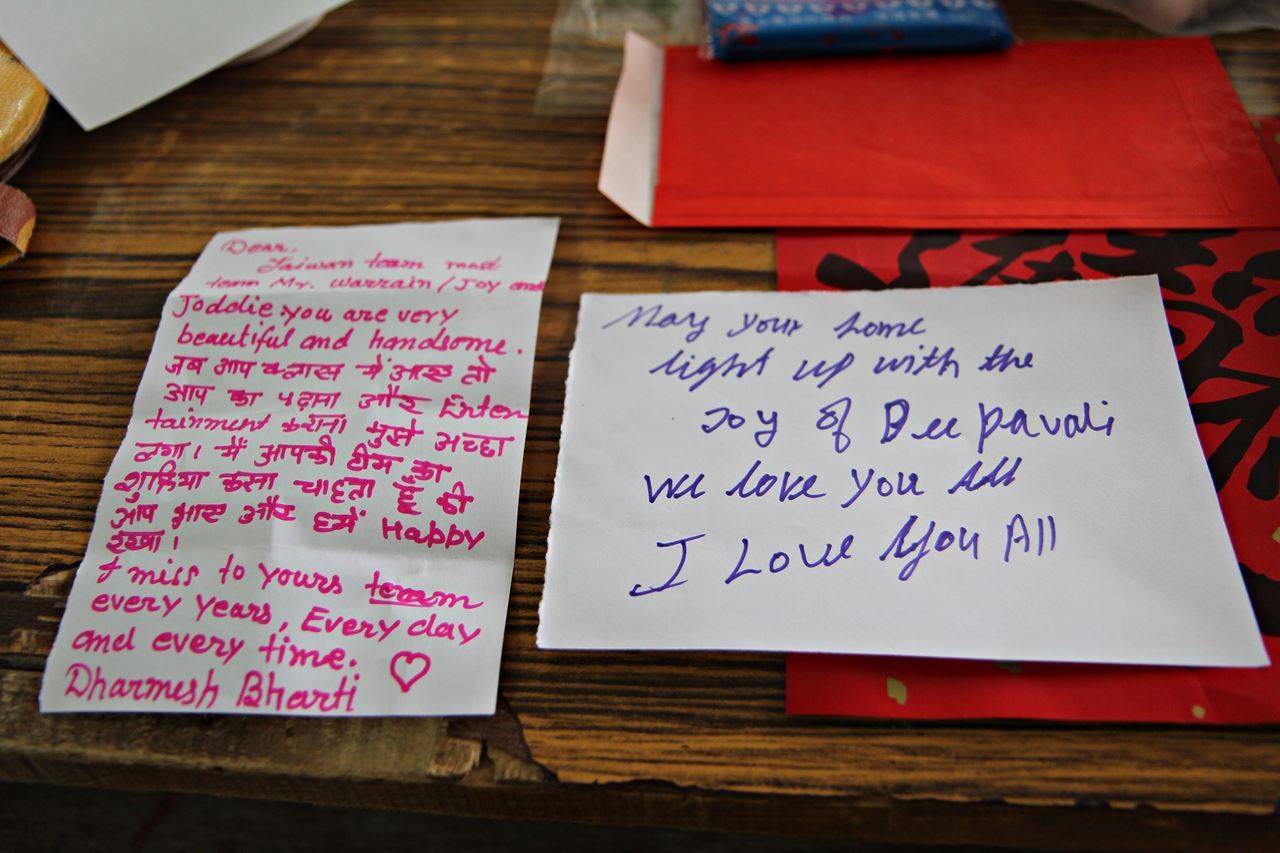 Dear,
Taiwan team
team Mr. Warrain/Joy and
Joddie you are very
beautiful and handsome.
जब आप क्लास में आए तो
आप का पढ़ाना और Enter
tainment कराना मुझे अच्छा
लगा। मैं आपकी टीम का
शुक्रिया करना चाहता हूँ की
आप आए और हमें Happy
रखा।
I miss to yours team
every years, Every day
and every time.
Dharmesh Bharti
May your home
light up with the
Joy of Deepavali
we love you All
I Love You All